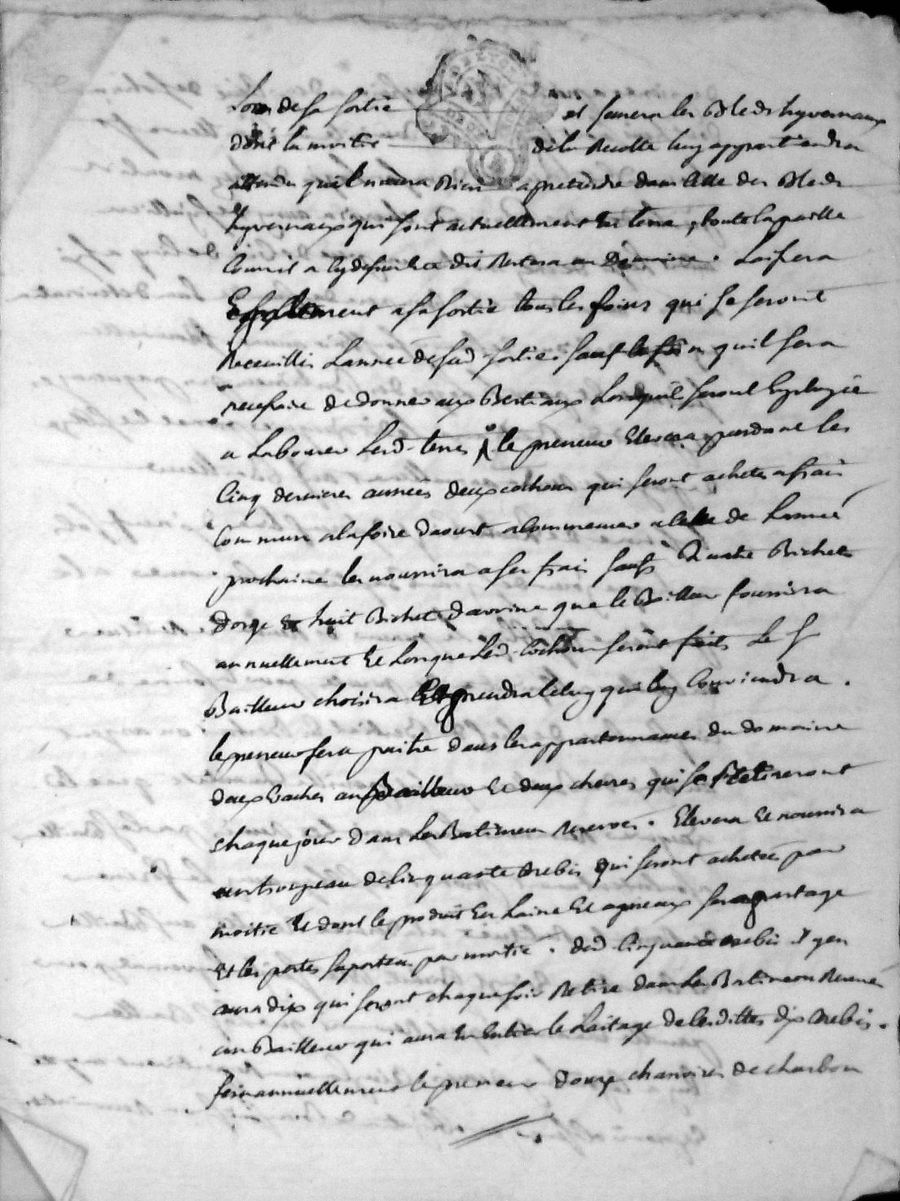 Lors de sa sortie et semera les Bleds hyvernaux
dont la moitie de la Recolte luy appartiendra
attendu quil naura Rien a pretendre dans celle des Bleds
hyvernaux qui sont actuellement en terre, toute la paille
Restera au Domaine. Laissera
Egallement a sa sortie tous les foins qui se seront
Receuillis Lannee de sad. sortie sauf le foin quil sera
necessaire de donner aux Bestiaux Lorsquil seront Employés
a Labourer Lesd. terres le preneur Elevera pendant les
Cinq dernieres années deux cochons qui seront achetes a frais
Commun a la foire daoust a Commencer a celle de Lannée
prochaine les nourrira a ses frais sauf Quatre Bichets
dorge Et huit Bichet davoine que le Bailleur fournira
annuellement Et Lorsque Lesd. Cochons seront faits Le S.r
Bailleur choisira Et prendra Celuy qui luy Conviendra.
le preneur fera paitre dans les appartenances du domaine
deux Vaches au Bailleur Et deux chevres qui se Retireront
chaque jour dans Les Batiments Reservés. Elevera Et nourrira
un troupeau de Cinquante Brebis qui seront achetée par
moitie Et dont le produit En Laine Et agneaux sera partagé
Et les pertes suportées par moitié. desd. Cinquante Brebis il y en
aura dix qui seront chaque soir Retiré dans Les Batiments Reservé
au Bailleur qui aura En Entier le Laitage de lesdittes dix Brebis.
fera annuellement le preneur douze charrois de charbon